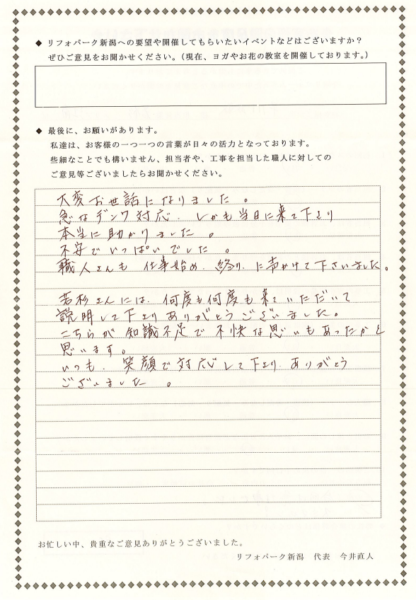 ◆ リフォパーク新潟への要望や開催してもらいたいイベントなどはございますか?
ぜひご意見をお聞かせください。(現在、ヨガやお花の教室を開催しております。)
◆ 最後に、お願いがあります。
私達は、お客様の一つ一つの言葉が日々の活力となっております。
些細なことでも構いません、担当者や、工事を担当した職人に対しての
ご意見等ございましたらお聞かせください。
大変お世話になりました。
急な 対応、しかも当日に来て下さり
本当に助かりました。
不安でいっぱいでした。
職人さんも 仕事始め、終りに声かけて下さいました。
若杉さんには、何度も何度も来ていただいて
説明して下さりありがとうございました。
こちらが知識不足で不快な思いもあったかと
思います。
いつも、笑顔で対応して下さり、ありがとう
ございました。
お忙しい中、貴重なご意見ありがとうございました。
リフォパーク新潟 代表 今井直人